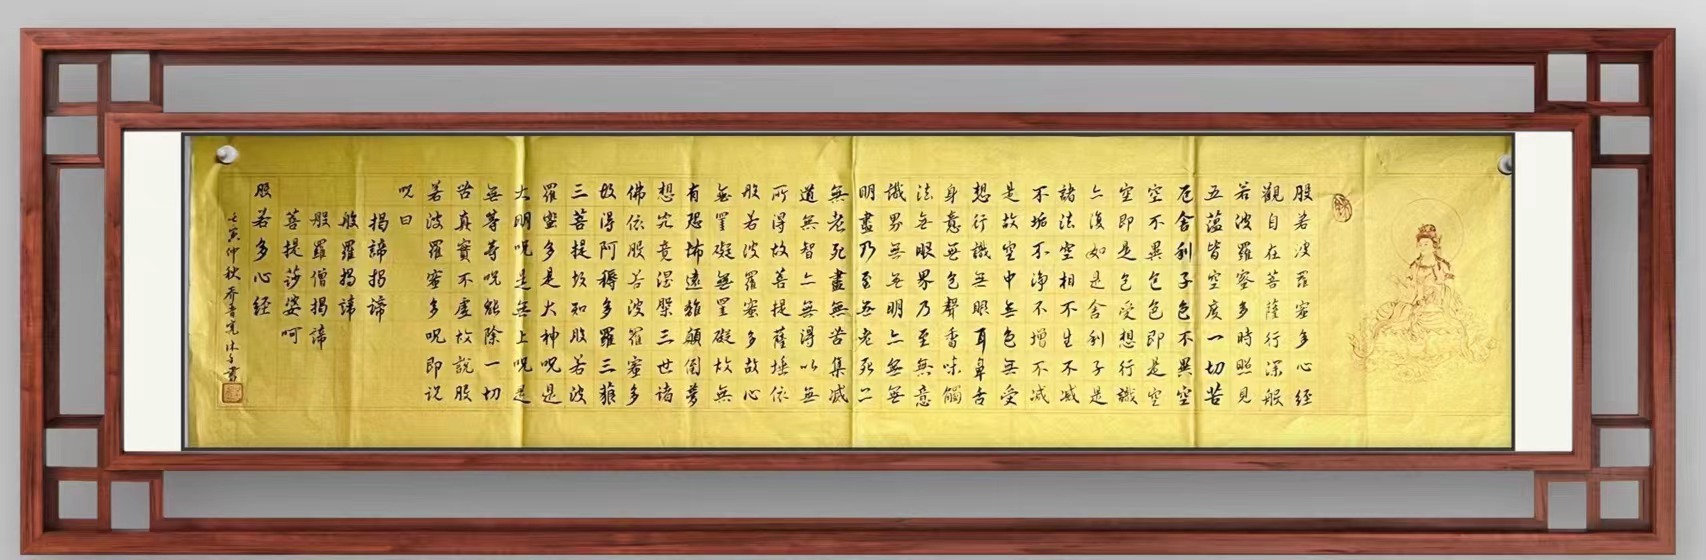 般若波羅蜜多心経
觀自在菩薩行深般
若波羅蜜多時照見
五蘊皆空度一切苦
厄舍利子色不異空
空不異色色即是空
空即是色受想行識
亦復如是舍利子是
諸法空相不生不滅
不垢不淨不增不减
是故空中無色無受
想行識無眼耳鼻舌
身意無色聲香味觸
法無眼界乃至無意
識界無無明亦無無
明盡乃至無老死亦
無老死盡無苦集滅
道無智亦無得以無
所得故菩提薩埵依
般若波羅蜜多故心
無罣礙無罣礙故無
有恐怖遠離顛倒夢
想究竟涅槃三世諸
佛依般若波羅蜜多
故得阿耨多羅三藐
三菩提故知般若波
羅蜜多是大神呪是
大明呪是無上呪是
無等等呪能除一切
苦真實不虛故説般
若波羅蜜多呪即説
呪曰
揭諦揭諦
般羅揭諦
般羅僧揭諦
菩提莎婆呵
般若多心経
壬寅仲秋書